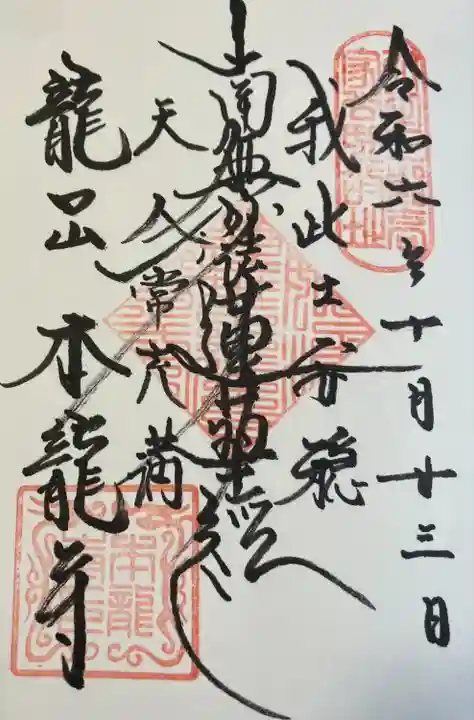 令和六年十月廿三日
我此土安穏
南無妙法蓮華経
天人常充満
龍口山本龍寺
本龍